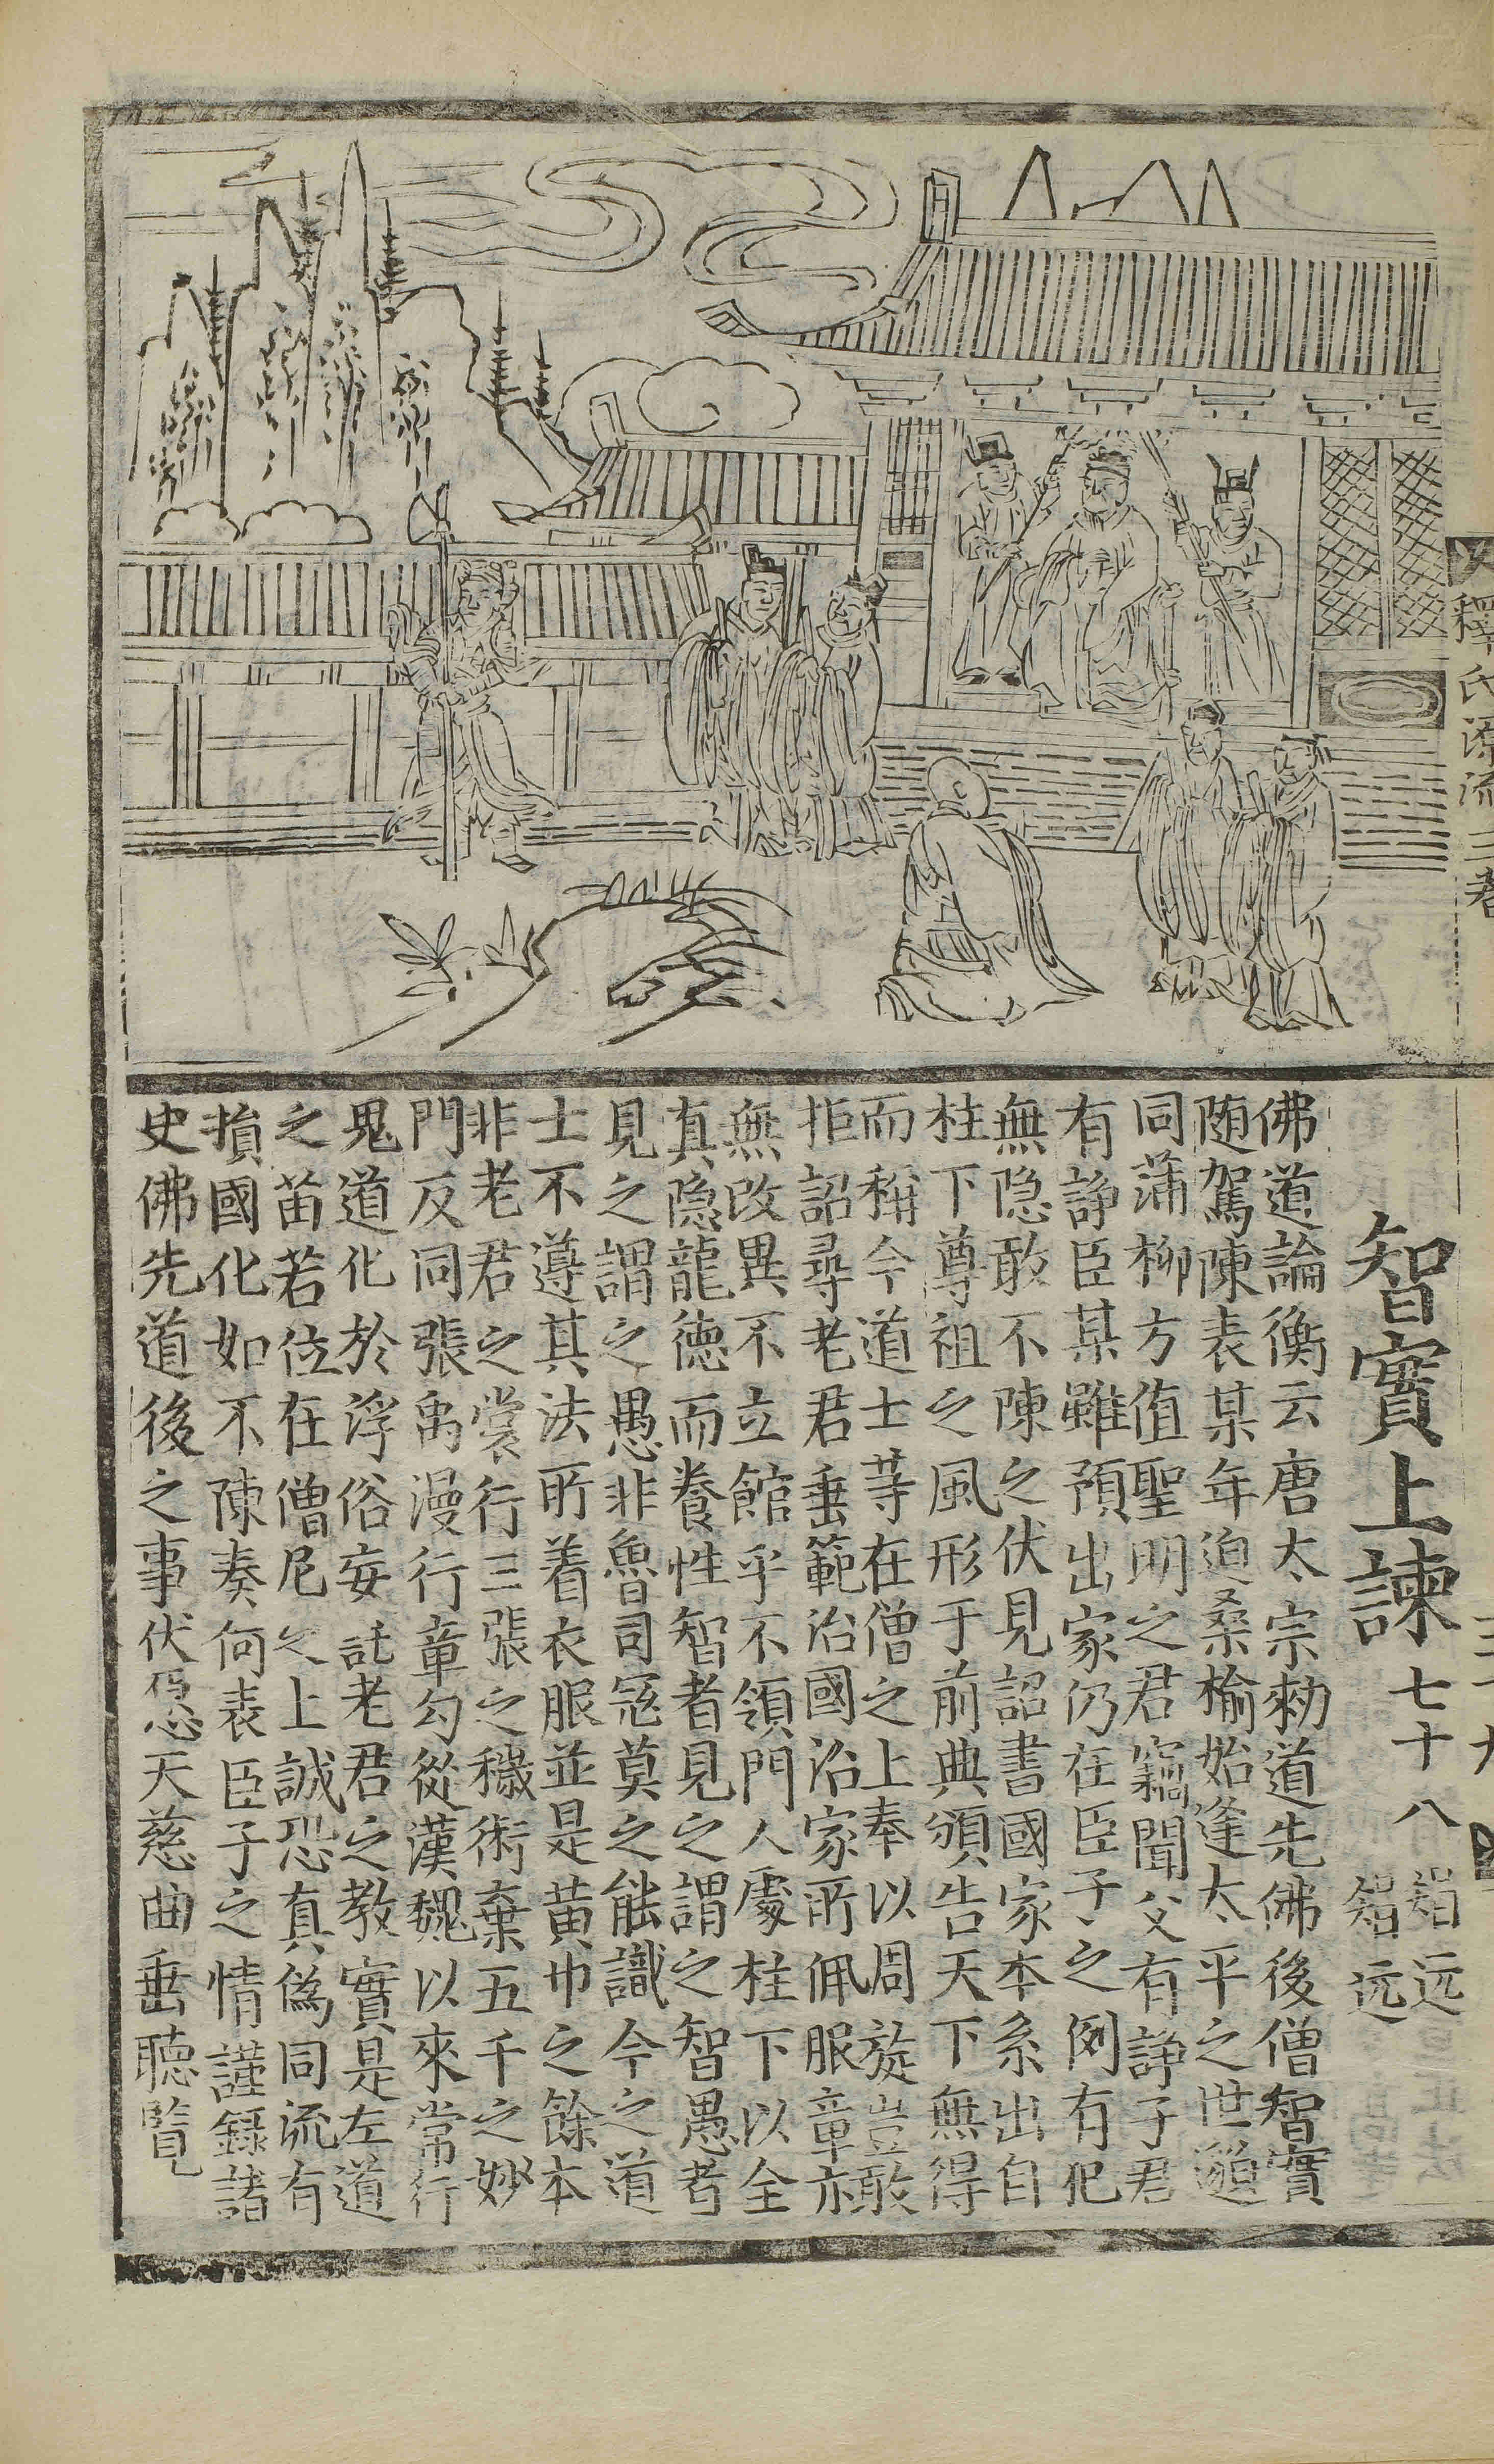 釋氏源流三卷
智實上諫 七十八 智远 智远
佛道論衡云唐太宗勑道先佛後僧智實
随駕陳表某年迫桑榆始逢太平之世貌
同蒲柳方值聖明之君竊聞父有諍子君
有諍臣某雖預出家仍在臣子之例有犯
無隐敢不陳之伏見詔書國家本系出自
柱下尊祖之風形于前典頒告天下無得
而稱今道士等在僧之上奉以周旋豈敢
拒詔尋老君垂範治國治家所佩服章亦
無改異不立館乎不領門人處柱下以全
真隐龍德而養性智者見之謂之智愚者
見之謂之愚非魯司冦莫之能識今之道
士不遵其法所着衣服並是黄巾之餘本
非老君之裳行三張之穢術棄五千之妙
門反同張禹漫行章勾從漢魏以來常行
鬼道化於浮俗妄託老君之教實是左道
之苗若位在僧尼之上誠恐真偽同流有
損國化如不陳奏何表臣子之情謹錄諸
史佛先道後之事伏愿天慈曲垂聽覧